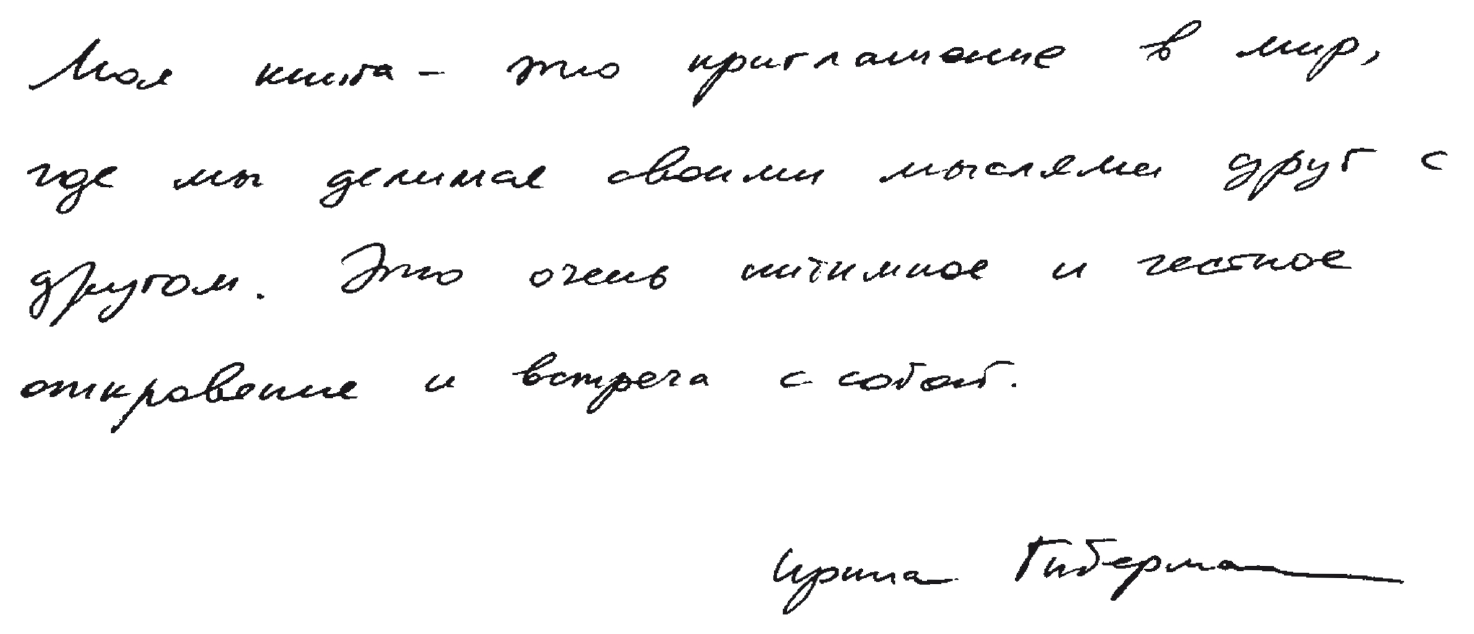 Моя книга – это приглашение в мир,
где мы делимся своими мыслями друг с
другом. Это очень интимное и честное
откровение и встреча с собой.
Ирина Гиберман